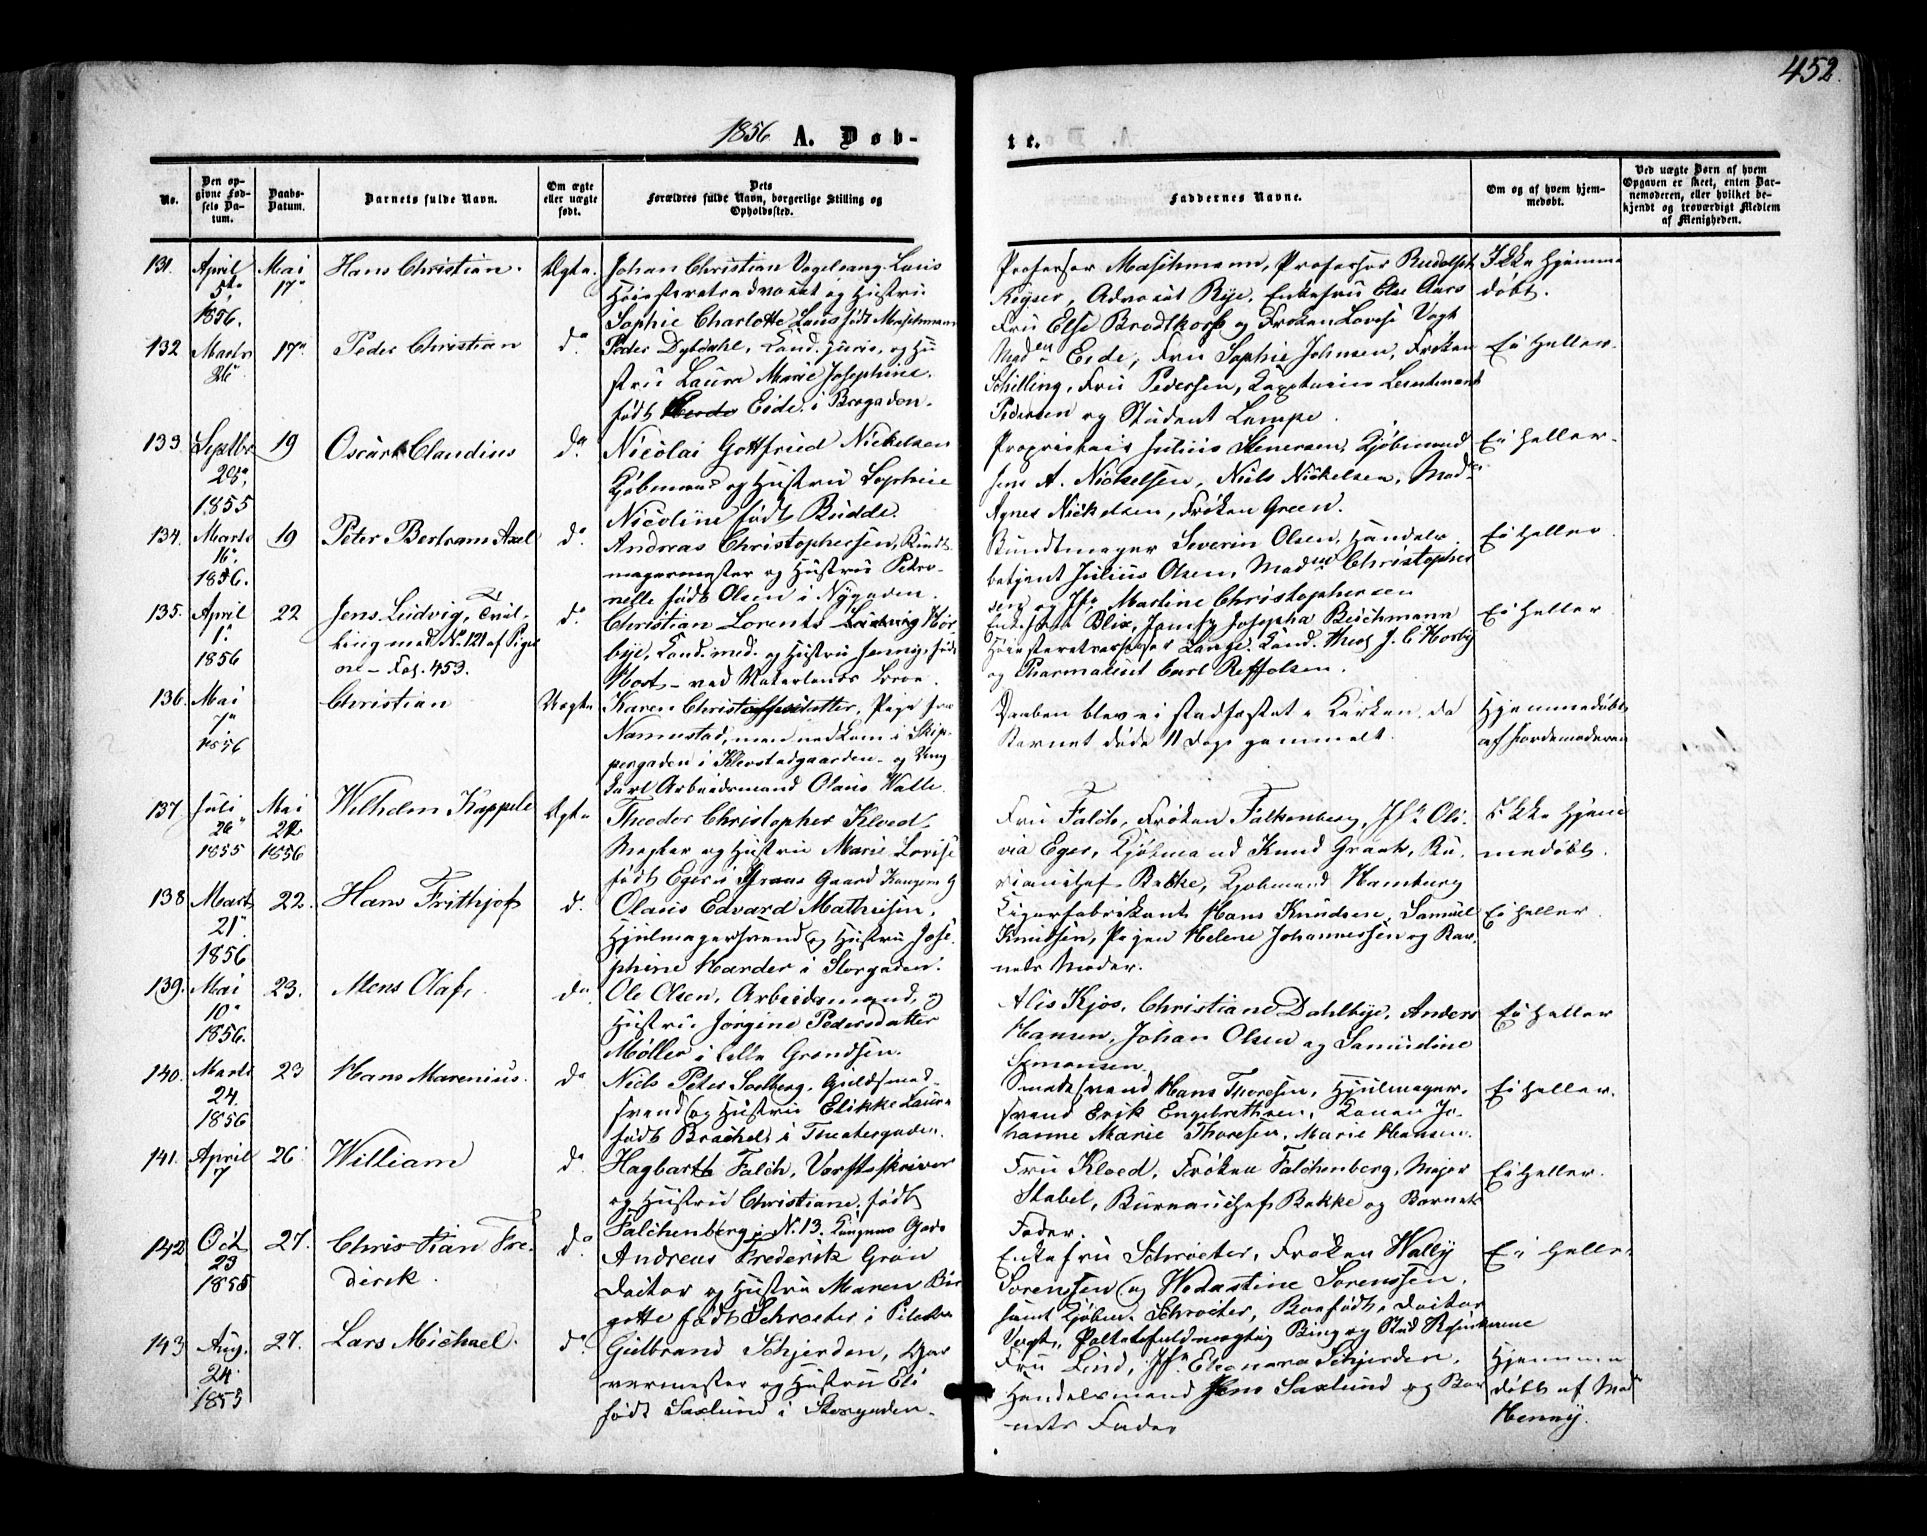 452.
1856 A. Døb-
te.
No.
Den op-
givne Fød-
sels Da-
tum.
Daabs-
Datum.
Barnets fulde Navn.
Om ægte
eller uægte
født.
Dets
Forældres fulde Navn, borgerlige Stilling og
Opholdssted.
Faddernes Navne.
Om og af hvem hjem-
medøbt.
Ved uægte Børn af hvem
Opgaven er skeet, enten Bar-
nemoderen, eller hvilket be-
kjendt og troværdigt Medlem
af Menigheden.
131. April 5te 1856. Mai 17de Hans Christian. Ægte.
Johan Christian Vogelsang Lous
Høiesteretsadvocat og Hustru
Sophie Charlotte Lous født Maschmann
Professor Maschmann, Professor Rudolph
Keyser, Advocat Rye, Enkefru Else Aars
Fru Else Brodtkorb og Frøken Lovise Vogt
Ikke Hjemme
døbt.
132 Marts 26. 17. Peder Christian do
Peder Dybdahl, Cand. juris, og Hu
stru Laura Marie Josephine.
født Eide, i Brogaden.
Eide, Fru Sophie Johnsen, Frøken
Schilling, Fru Pedersen, Lieutenant
Pedersen og Student Lampe.
Ei heller.
133 Septbr 1855 19 Oscar Claudius do
Nicolai Gottfried Nickelsen
Kjøbmand og Hustru Sophie
Nicoline født Budde.
Proprietair Julius Stenersen, Kjøbmand
Jens A. Nickelsen, Niels Nickelsen, Mad.
Agnes Nickelsen, Frøken Green.
Ei heller.
134. Marts 16. 1856. 19 Peter Bertram Axel do
Andreas Christophersen, Bundt-
magermester og Hustru Petro-
nelle født Olsen i Nygaden.
Bundtmager Severin Olsen, Handels-
betjent Julius Olsen, Mad. Christopher
sen og Jfr. Martine Christophersen
Ei heller.
135. April 1. 1856 22 Jens Ludvig, Tvil-
ling med No 121 af Pige
ne - Fol. 453. do
Christian Lorents Ludvig Hor-
bye, Cand. med. og Hustru Jenny, født
Most - ved Vaterlands Broe.
Blix, Jomfr Josepha Beichmann
Høiesteretsassessor Lange, Cand. Theol J. C. Horby
og Pharmaceut Carl Reffolsen.
Ei heller.
136. Mai 7de 1856 Christian Uægte
Karen Christoffersdatter, Pige fra
Nannestad, men nedkom i Skip-
pergaden i Klevstadgaarden - og Ung
karl Arbeidsmand Olaus Walle.
Daaben blev ei stadfæstet i Kirken, da
Barnet døde 11 Dage gammelt.
Hjemmedøbt
af Jordemoderen
137. Juli 26. 1855 Mai 22 1856 Wilhelm Kappele Ægte
Theodor Christopher Kloed,
Mægler og Hustru Marie Lovise
født Eger i Gaard Kongens G
Fru Falch, Frøken Falkenberg, Jfr. Oli-
via Eger, Kjøbmand Knud Graah, Bu-
reauchef Bakke, Kjøbmand Hamburg
Ikke Hjem
medøbt.
138 Marts 21. 1856 22. Hans Frithjof do
Olaus Edvard Mathiesen,
Hjulmagersvend og Hustru Jose-
phine Harder i Storgaden.
Cigarfabrikant Hans Knudsen, Samuel
Knudsen, Pigen Helene Johannessen og Bar-
nets Moder.
Ei heller.
139. Mai 10. 1856. 23. Mons Olaf. do
Ole Olsen, Arbeidsmand, og
Hustru Jørgine Pedersdatter
Møller i Lille Grændsen.
Alis Kjos, Christiane Dahlbye, Anders
Hansen, Johan Olsen og Samudine
Simonsen.
Ei heller
140. Marts 24. 1856 23 Hans Marenius. do
Niels Peter Soelberg, Guldsmed-
svend og Hustru Elikke Laura
født Brackel, i Theatergaden.
svend Hans Thoresen, Hjulmager-
svend Erik Engebrethsen, Karen Jo-
hanne Marie Thoresen, Marie Hansen.
Ei heller.
141. April 7 26. William do
Hagbarth Falch, Vorstskriver
og Hustru Christiane, født
Falchenberg i No. 13. Kongens Gade
Fru Kloed, Frøken Falchenberg, Major
Stabel, Bureauchef Bakke og Barnets
Fader.
Ei heller.
142 Oct. 23 1855 27. Christian Fre-
derik. do
Andreas Frederik Grøn
Doctor og Hustru Maren Bir
gotte født Schroeter, i Pilestr.
Enkefru Schroeter, Frøken Wally
Sørensen og Wedastine Sørenssen,
samt Kjøbm. Schroeter, Boefødt, Doctor
Vogt, Politiefuldmægtig Bing og Stud
Ei heller
143 Aug. 24 1855 27. Lars Michael. do
Gulbrand Schjerden, Gar
vermester og Hustru Eli
født Saxlund i Storgaden.
Fru Lind, Jfr. Eleonora Schjerden,
Handelsmand Jens Saxlund og Bar
nets Fader
Hjemme
døbt af Mad
Henny.